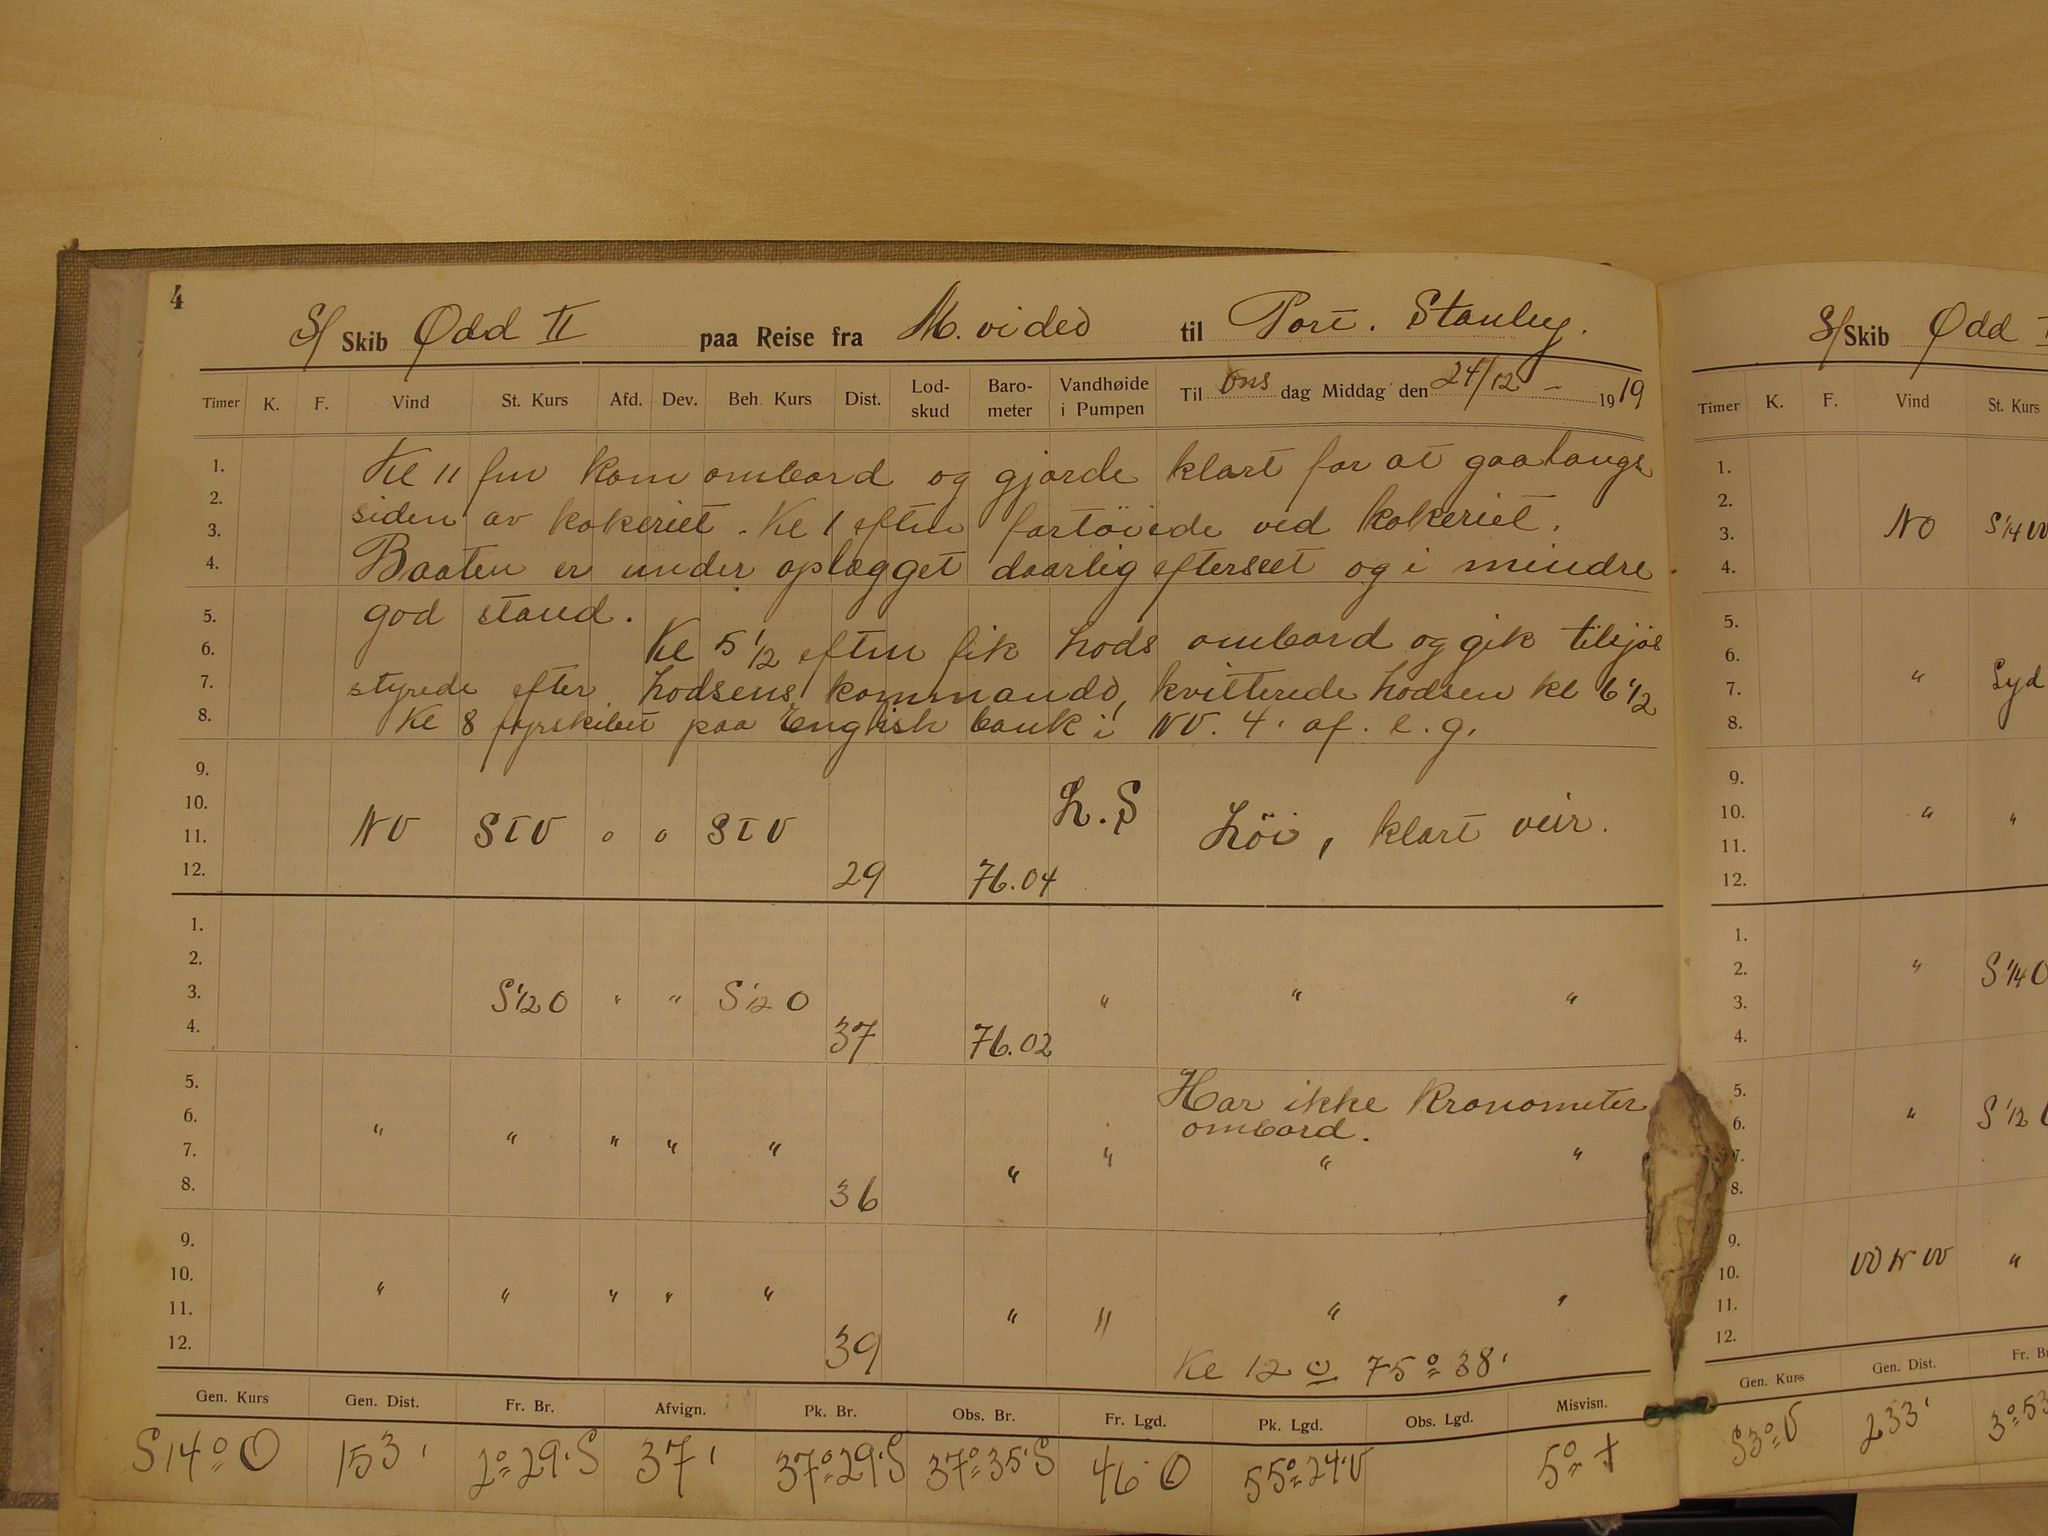 4
S/ Skib Ødd II paa Reise fra M. video til Port. Stanley.
Timer K. F. Vind St. Kurs Afd. Dev. Beh. Kurs Dist. Lod-skud Baro-meter Vandhøide i Pumpen Til Ons dag Middag den 24/12 – 1919
1. Kl 11 fm kom ombord og gjorde klart for at gaa langs
2.
3. siden av kokeriet. Kl 1 eftm fortöiede ved kokeriet.
4. Baaten er under oplægget daarlig efterseet og i mindre
5. god stand.
6. Kl 5 1/2 eftm fik Lods ombord og gik tilsjös
7. styrede efter Lodsens kommando, kvitterede Lodsen kl 6 1/2
8. Kl 8 fyrskibet paa English bank i NV. 4' af. l. g.
9.
10. L.S
11. NV STV o o STV Löi, klart veir.
12. 29 76.04
1.
2.
3. S 1/2 O " " S 1/2 O " " "
4. 37 76.02
5. Har ikke Kronometer
6. ombord.
7. " " " " " " " "
8. 36 "
9.
10. " " " " "
11. " " " '
12. 39 Kl 12 ⊙ 75° 38'
Gen. Kurs Gen. Dist. Fr. Br. Afvign. Pk. Br. Obs. Br. Fr. Lgd. Pk. Lgd. Obs. Lgd. Misvisn.
S 14° O 153' 2° 29' S 37' 37° 29' S 37° 35' S 46' O 55° 24' V 5° +
S/ Skib Ødd
Timer K. F. Vind St. Kurs
1.
2.
3. NO S 1/4 W
4.
5.
6.
7. " Syd
8.
9.
10. " "
11.
12.
1.
2. " S 1/4 O
3.
4.
5.
6. " S 1/2
7.
8.
9.
10. WNW "
11.
12.
Gen. Kurs Gen. Dist. Fr. Br
S 3° V 233' 3° 53